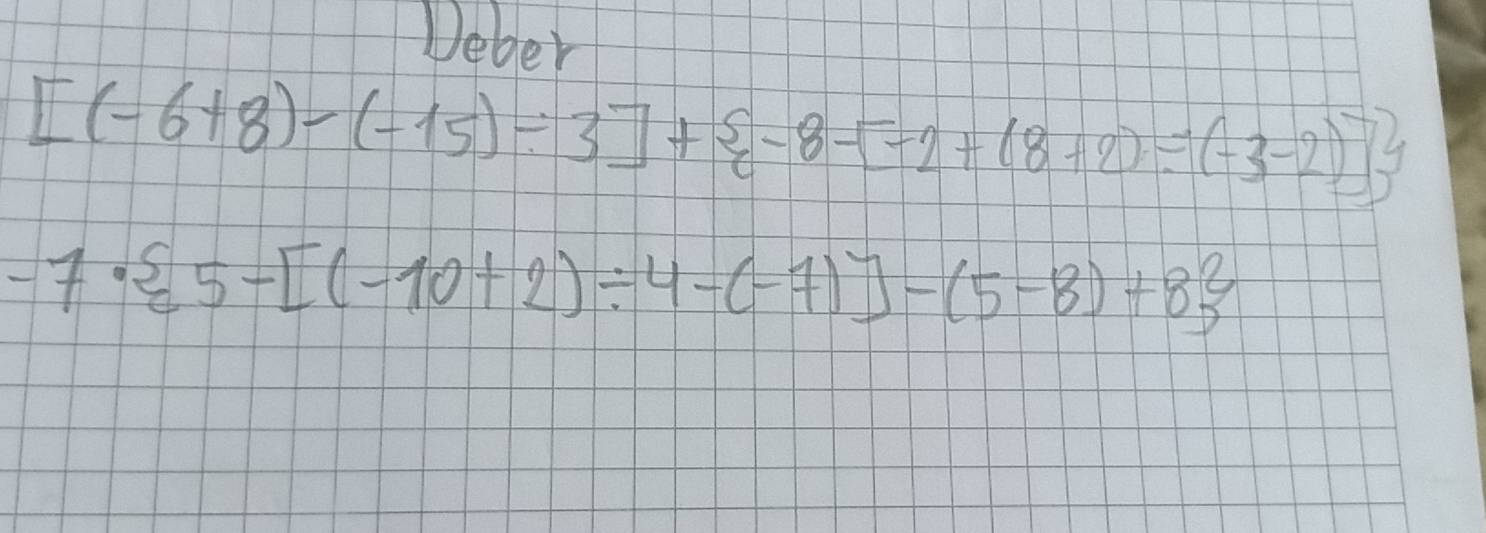 Deber
[(-6+8)-(-15)÷3]+{-8-[-2+(8+2)÷(-3-2)]}
-7·{5-[(-10+2)÷4-(-7)]-(5-8)+8}